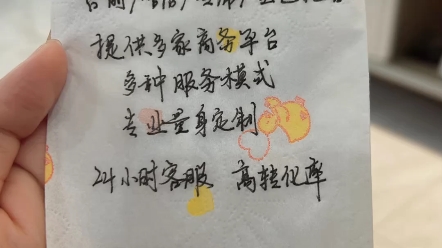 提供多家商务平台
多种服务模式
专业量身定制
24小时客服 高转化率